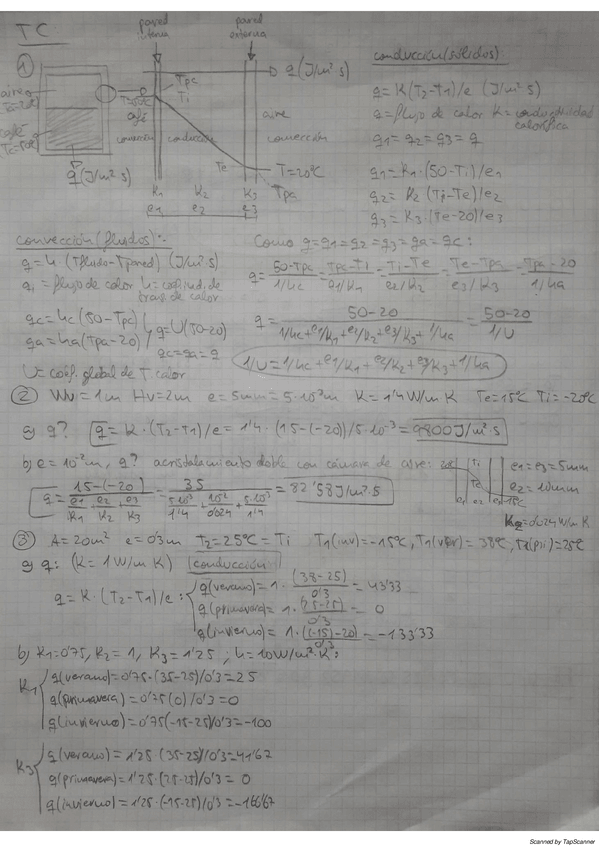 TC
pared interna
pared externa
① 
aire
café
q (J/m²s)
Tpc
Ti
café
convección
conducción
aire
convección
Te
T=20ºC
Tpa
K1 K2 K3
e1 e2 e3
q (J/m²s)
conducción (sólidos):
q = K(T2-T1)/e (J/m²s)
q = flujo de calor K = conductividad calorífica
q1 = q2 = q3 = q
q1 = K1·(50-Ti)/e1
q2 = K2 (Ti-Te)/e2
q3 = K3·(Te-20)/e3
convección (fluidos):
q = h·(Tfluido-Tpared) (J/m²s)
q = flujo de calor h = coef. ind. de trans. de calor
qc = hc(50-Tpc)
qa = ha(Tpa-20)
q = U(50-20)
qc = qa = q
U = coef. global de T calor
Como q = q1 = q2 = q3 = qa = qc:
q = 50-Tpc/1/hc = Tpc-Ti/e1/K1 = Ti-Te/e2/K2 = Te-Tpa/e3/K3 = Tpa-20/1/ha
q = 50-20/1/hc+e1/K1+e2/K2+e3/K3+1/ha = 50-20/1/U
1/U = 1/hc+e1/K1+e2/K2+e3/K3+1/ha
② Wv = 1m Hv = 2m e = 5mm = 5·10⁻³m K = 1'4 W/m K Te = 15ºC Ti = -20ºC
a) q? q = K·(T2-T1)/e = 1'4·(15-(-20))/5·10⁻³ = 9800 J/m²·s
b) e = 10⁻²m, q? acristalamiento doble con cámara de aire:
Ti
Te
e1 e2 e3
e1 = e3 = 5mm
e2 = 10mm
= 0'024 W/m K
q = 15-(-20)/e1/K1+e2/K2+e3/K3 = 35/5·10⁻³/1'4+10⁻²/0'024+5·10⁻³/1'4 = 82'58 J/m²·s
③ A = 20m² e = 0'3m T2 = 25ºC = Ti T1(inv) = -15ºC, T1(ver) = 38ºC, T1(pri) = 25ºC
a) q: (K = 1 W/m K) conducción
q = K·(T2-T1)/e:
q(verano) = 1·(38-25)/0'3 = 43'33
q(primavera) = 1·(25-25)/0'3 = 0
q(invierno) = 1·((-15)-20)/0'3 = -133'33
b) K1 = 0'75, K2 = 1, K3 = 1'25, h = 10 W/m²·K:
K1
q(verano) = 0'75·(35-25)/0'3 = 25
q(primavera) = 0'75(0)/0'3 = 0
q(invierno) = 0'75(-15-25)/0'3 = -100
K3
q(verano) = 1'25 (35-25)/0'3 = 41'67
q(primavera) = 1'25·(25-25)/0'3 = 0
q(invierno) = 1'25·(-15-25)/0'3 = -166'67
Scanned by TapScanner